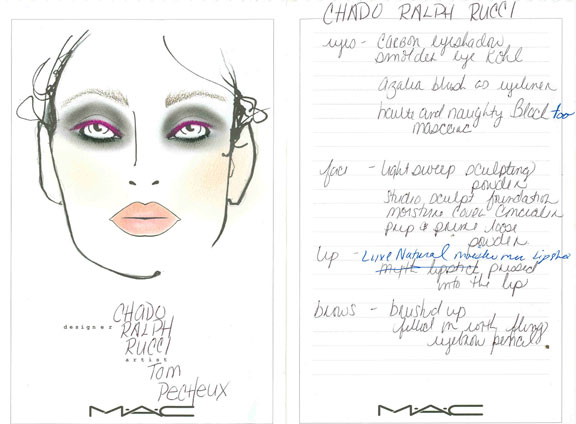 designer
CHADO
RALPH
RUCCI
artist
TOM
PECHEUX
MAC
CHADO RALPH RUCCI
eyes - Carbon eyeshadow
smolder eye kohl
azalia blush as eyeliner
haute and naughty Black too
mascara
face - light sweep sculpting
powder
Studio sculpt foundation
moisture cover concealer
prep & prime loose
powder
lip - Luxe Natural
lipstick pressed
into the lip
brows - brushed up
filled in with fling
eyebrow pencil.
MAC